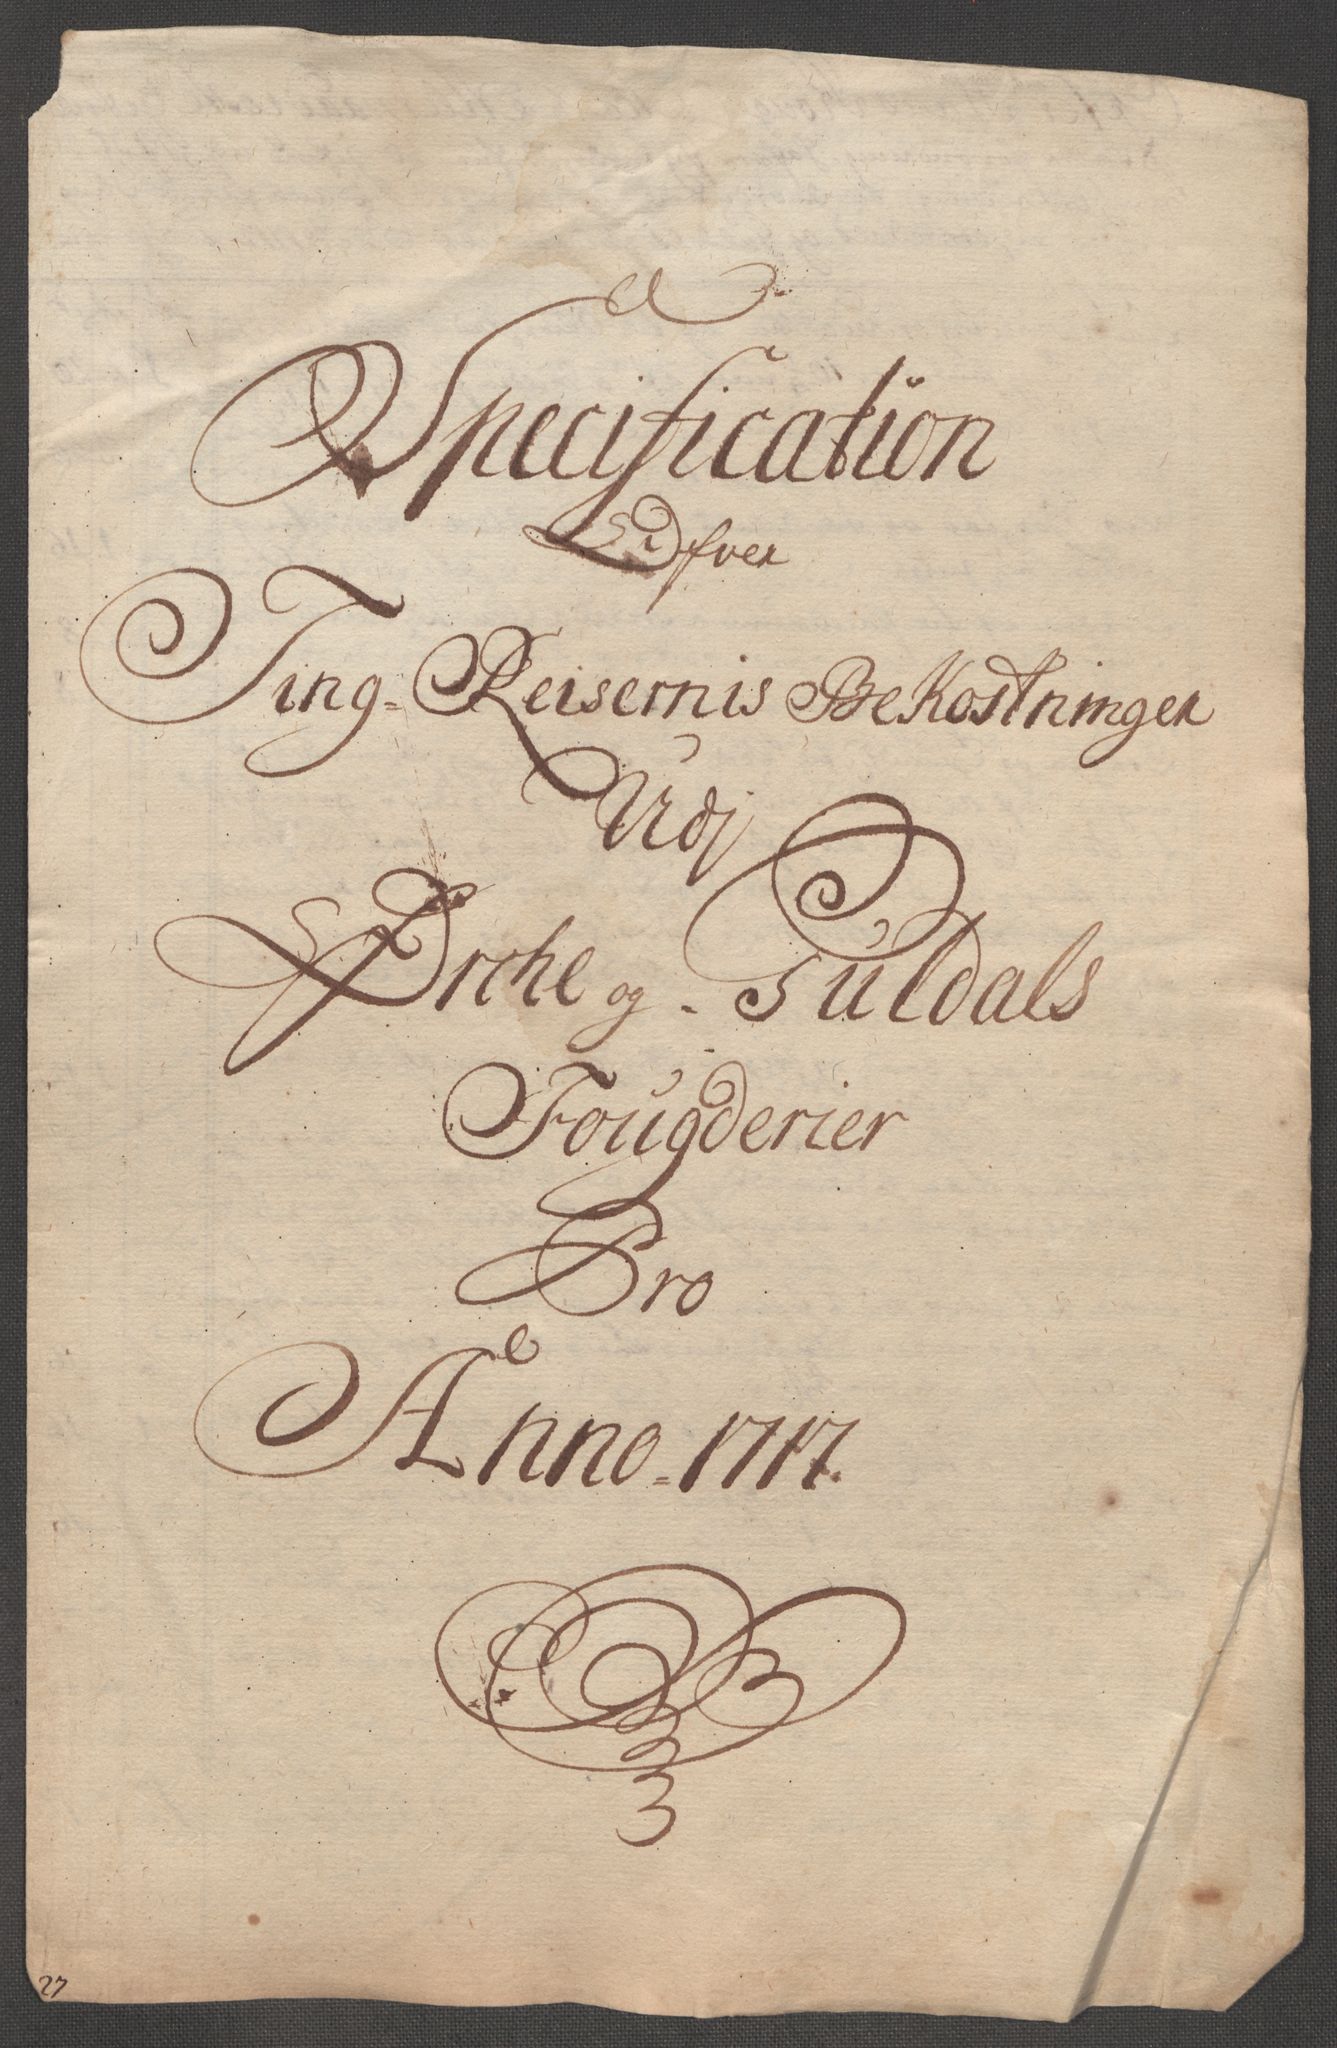 Specification
Øfver
Ting-Reisernis Bekostninger
Udj
Ørche og Guldals
Fougderier
Pro
Anno 1717.
27